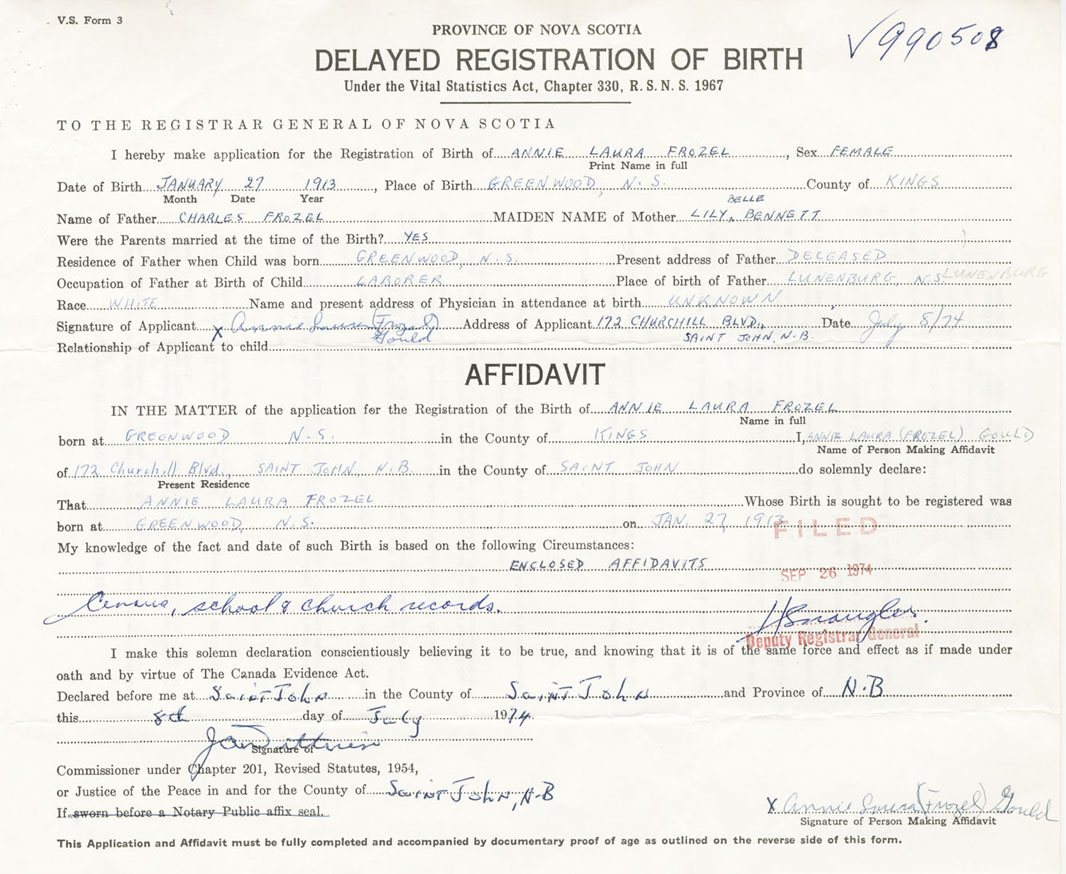 V.S. Form 3
PROVINCE OF NOVA SCOTIA
√990508
DELAYED REGISTRATION OF BIRTH
Under the Vital Statistics Act, Chapter 330, R.S.N.S. 1967
TO THE REGISTRAR GENERAL OF NOVA SCOTIA
I hereby make application for the Registration of Birth of ANNIE LAURA FROZEL, Sex FEMALE
Print Name in full
Date of Birth JANUARY 27 1913, Place of Birth GREENWOOD, N.S. County of KINGS
Month Date Year
BELLE
Name of Father CHARLES FROZEL MAIDEN NAME of Mother LILY BENNETT
Were the Parents married at the time of the Birth? YES
Residence of Father when Child was born GREENWOOD, N.S. Present address of Father DECEASED
Occupation of Father at Birth of Child LABORER Place of birth of Father LUNENBURG, N.S. LUNENBURG
Race WHITE Name and present address of Physician in attendance at birth UNKNOWN
Signature of Applicant X Annie Laura (Frozel) Address of Applicant 172 CHURCHILL BLVD., Date July 8/74
Gould SAINT JOHN, N.B.
Relationship of Applicant to child
AFFIDAVIT
IN THE MATTER of the application for the Registration of the Birth of ANNIE LAURA FROZEL
Name in full
born at GREENWOOD N.S. in the County of KINGS I, ANNIE LAURA (FROZEL) GOULD
Name of Person Making Affidavit
of 172 Churchill Blvd., SAINT JOHN, N.B in the County of SAINT JOHN do solemnly declare:
Present Residence
That ANNIE LAURA FROZEL Whose Birth is sought to be registered was
born at GREENWOOD, N.S. on JAN. 27, 1913
FILED
My knowledge of the fact and date of such Birth is based on the following Circumstances:
ENCLOSED AFFIDAVITS
SEP 26 1974
Census, school & church records.
Deputy Registrar General
I make this solemn declaration conscientiously believing it to be true, and knowing that it is of the same force and effect as if made under
oath and by virtue of The Canada Evidence Act.
Declared before me at Saint John in the County of Saint John and Province of N.B
this 8th day of July 1974.
Signature of
Commissioner under Chapter 201, Revised Statutes, 1954,
or Justice of the Peace in and for the County of Saint John, N.B
If sworn before a Notary Public affix seal.
X Annie Laura (Frozel) Gould
Signature of Person Making Affidavit
This Application and Affidavit must be fully completed and accompanied by documentary proof of age as outlined on the reverse side of this form.